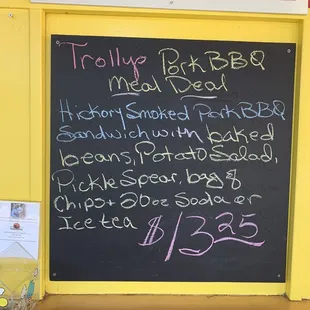 Trollyp Pork BBQ
Meal Deal
Hickory Smoked Pork BBQ
Sandwich with baked
beans, Potato Salad,
Pickle Spear, bag of
Chips + 20oz Soda or
Ice tea $1325